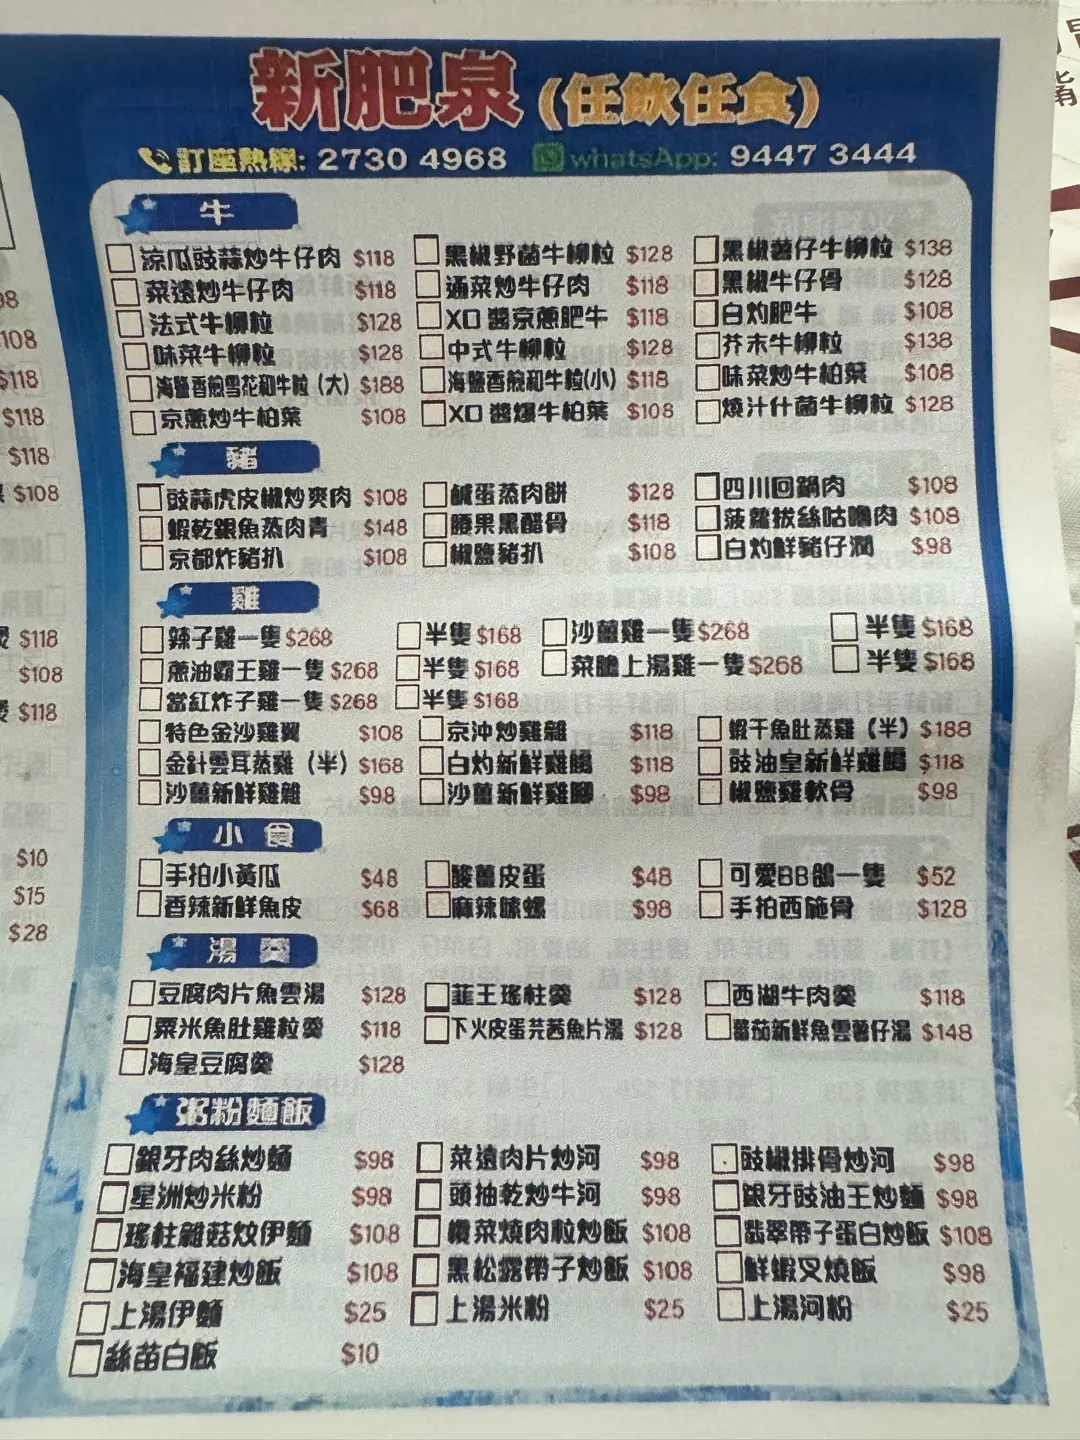 新肥泉(任飲任食)
訂座熱線: 2730 4968 whatsApp: 9447 3444
牛
涼瓜豉蒜炒牛仔肉 $118 黑椒野菌牛柳粒 $128 黑椒薯仔牛柳粒 $138
菜遠炒牛仔肉 $118 通菜炒牛仔肉 $118 黑椒牛仔骨 $128
法式牛柳粒 $128 XO醬京蔥肥牛 $118 白灼肥牛 $108
味菜牛柳粒 $128 中式牛柳粒 $128 芥末牛柳粒 $138
海鹽香煎雪花和牛粒(大) $188 海鹽香煎和牛粒(小) $118 味菜炒牛柏葉 $108
京蔥炒牛柏葉 $108 XO醬爆牛柏葉 $108 燒汁什菌牛柳粒 $128
豬
豉蒜虎皮椒炒爽肉 $108 鹹蛋蒸肉餅 $128 四川回鍋肉 $108
蝦乾銀魚蒸肉青 $148 腰果黑醋骨 $118 菠蘿拔絲咕嚕肉 $108
京都炸豬扒 $108 椒鹽豬扒 $108 白灼鮮豬仔潤 $98
雞
辣子雞一隻 $268 半隻 $168 沙薑雞一隻 $268 半隻 $168
蔥油霸王雞一隻 $268 半隻 $168 菜膽上湯雞一隻 $268 半隻 $168
當紅炸子雞一隻 $268 半隻 $168
特色金沙雞翼 $108 京沖炒雞雜 $118 蝦干魚肚蒸雞(半) $188
金針雲耳蒸雞(半) $168 白灼新鮮雞腸 $118 豉油皇新鮮雞腸 $118
沙薑新鮮雞雜 $98 沙薑新鮮雞腳 $98 椒鹽雞軟骨 $98
小食
手拍小黃瓜 $48 酸薑皮蛋 $48 可愛BB鴿一隻 $52
香辣新鮮魚皮 $68 麻辣螺 $98 手拍西施骨 $128
湯羹
豆腐肉片魚雲湯 $128 韮王瑤柱羹 $128 西湖牛肉羹 $118
粟米魚肚雞粒羹 $118 下火皮蛋芫茜魚片湯 $128 蕃茄新鮮魚雲薯仔湯 $148
海皇豆腐羹 $128
粥粉麵飯
銀牙肉絲炒麵 $98 菜遠肉片炒河 $98 豉椒排骨炒河 $98
星洲炒米粉 $98 頭抽乾炒牛河 $98 銀牙豉油王炒麵 $98
瑤柱雜菇炆伊麵 $108 欖菜燒肉粒炒飯 $108 翡翠帶子蛋白炒飯 $108
海皇福建炒飯 $108 黑松露帶子炒飯 $108 鮮蝦叉燒飯 $98
上湯伊麵 $25 上湯米粉 $25 上湯河粉 $25
絲苗白飯 $10